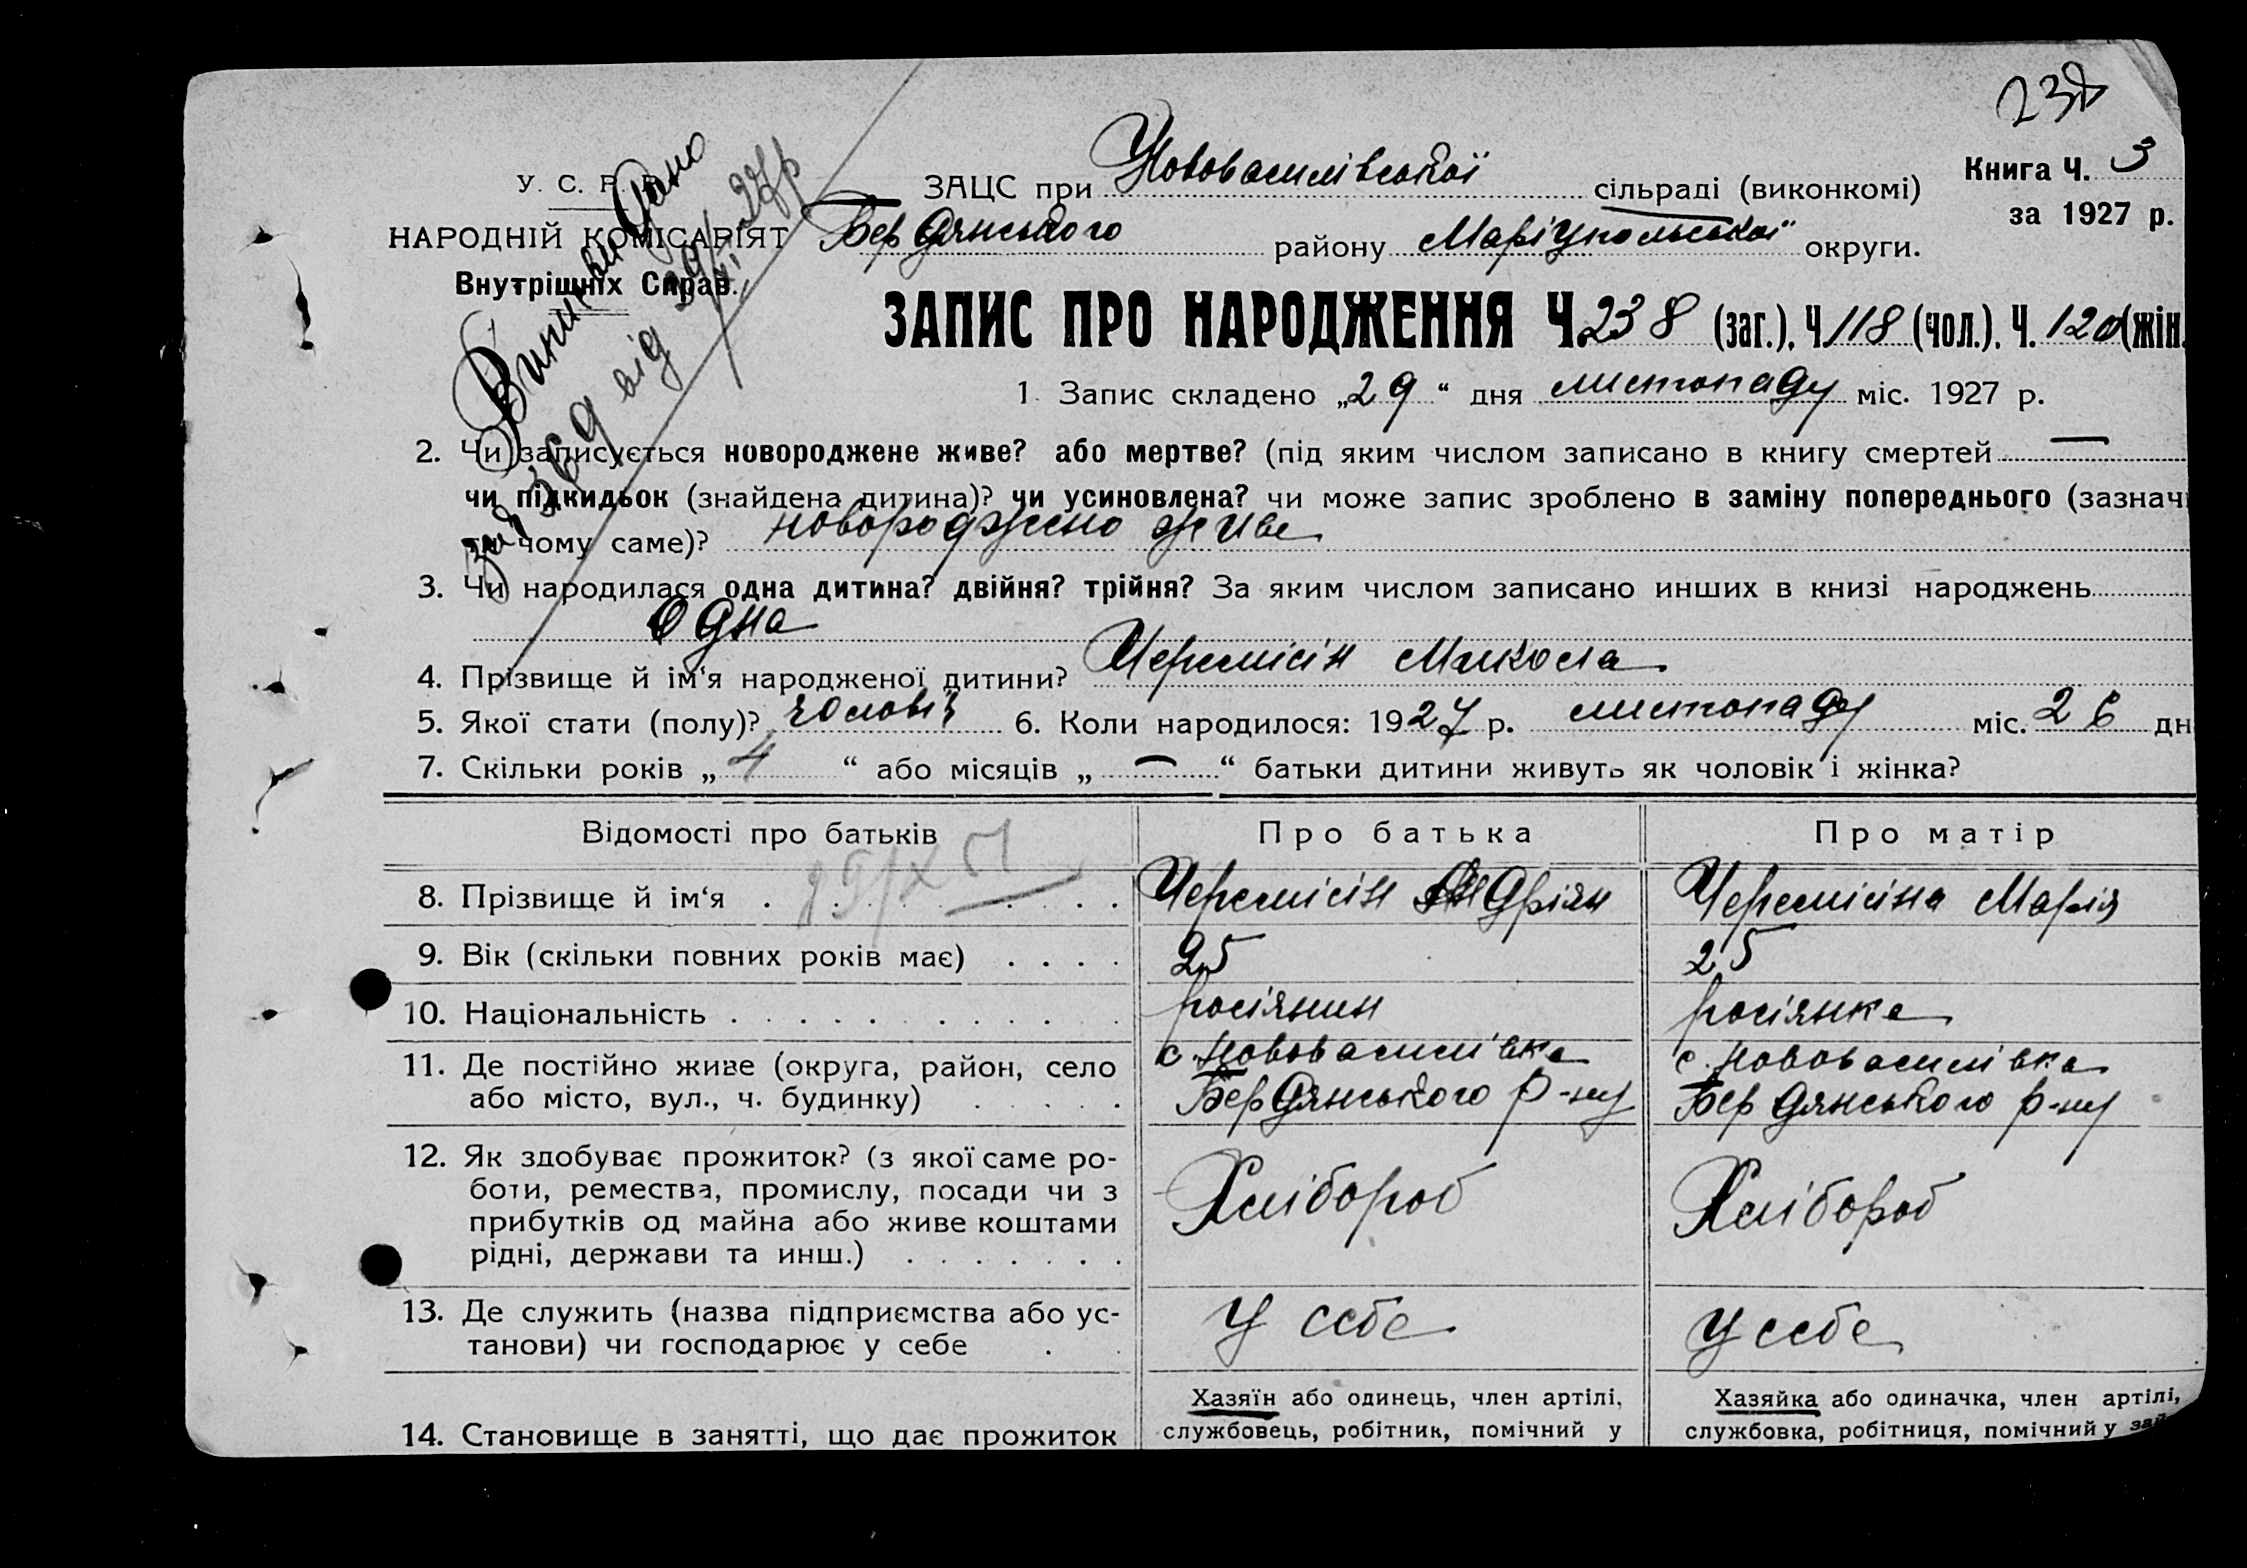 238
У. С. Р. Р.
НАРОДНІЙ КОМІСАРІЯТ
Внутрішніх Справ.
Книга Ч. 3
за 1927 р.
ЗАЦС при Нововасилівської сільраді (виконкомі)
Бердянського району Маріупольської округи.
Виписку видано
за 369 від 29/XI 27 р
ЗАПИС ПРО НАРОДЖЕННЯ Ч. 238 (заг.), Ч. 118 (чол.), Ч. 120 (жін.
1. Запис складено „29“ дня листопаду міс. 1927 р.
2. Чи записується новороджене живе? або мертве? (під яким числом записано в книгу смертей —
чи підкидьок (знайдена дитина)? чи усиновлена? чи може запис зроблено в заміну попереднього (зазнач
ти чому саме)? новороджено живе
3. Чи народилася одна дитина? двійня? трійня? За яким числом записано инших в книзі народжень
одна
4. Прізвище й ім‘я народженої дитини? Черемісін Микола
5. Якої стати (полу)? чоловіч 6. Коли народилося: 1927 р. листопаду міс. 26 дн
7. Скільки років „4“ або місяців „—“ батьки дитини живуть як чоловік і жінка?
Відомості про батьків
Про батька
Про матір
8. Прізвище й ім‘я
Черемісін Андріян
Черемісіна Марія
9. Вік (скільки повних років має)
25
25
10. Національність
росіянин
росіянка
11. Де постійно живе (округа, район, село
або місто, вул., ч. будинку)
с. Нововасилівка
Бердянського р-ну
с. Нововасилівка
Бердянського р-ну
12. Як здобуває прожиток? (з якої саме ро-
боти, ремества, промислу, посади чи з
прибутків од майна або живе коштами
рідні, держави та инш.)
Хлібороб
Хлібороб
13. Де служить (назва підприємства або ус-
танови) чи господарює у себе
У себе
У себе
14. Становище в занятті, що дає прожиток
Хазяїн або одинець, член артілі,
службовець, робітник, помічний у
Хазяйка або одиначка, член артілі,
службовка, робітниця, помічний у